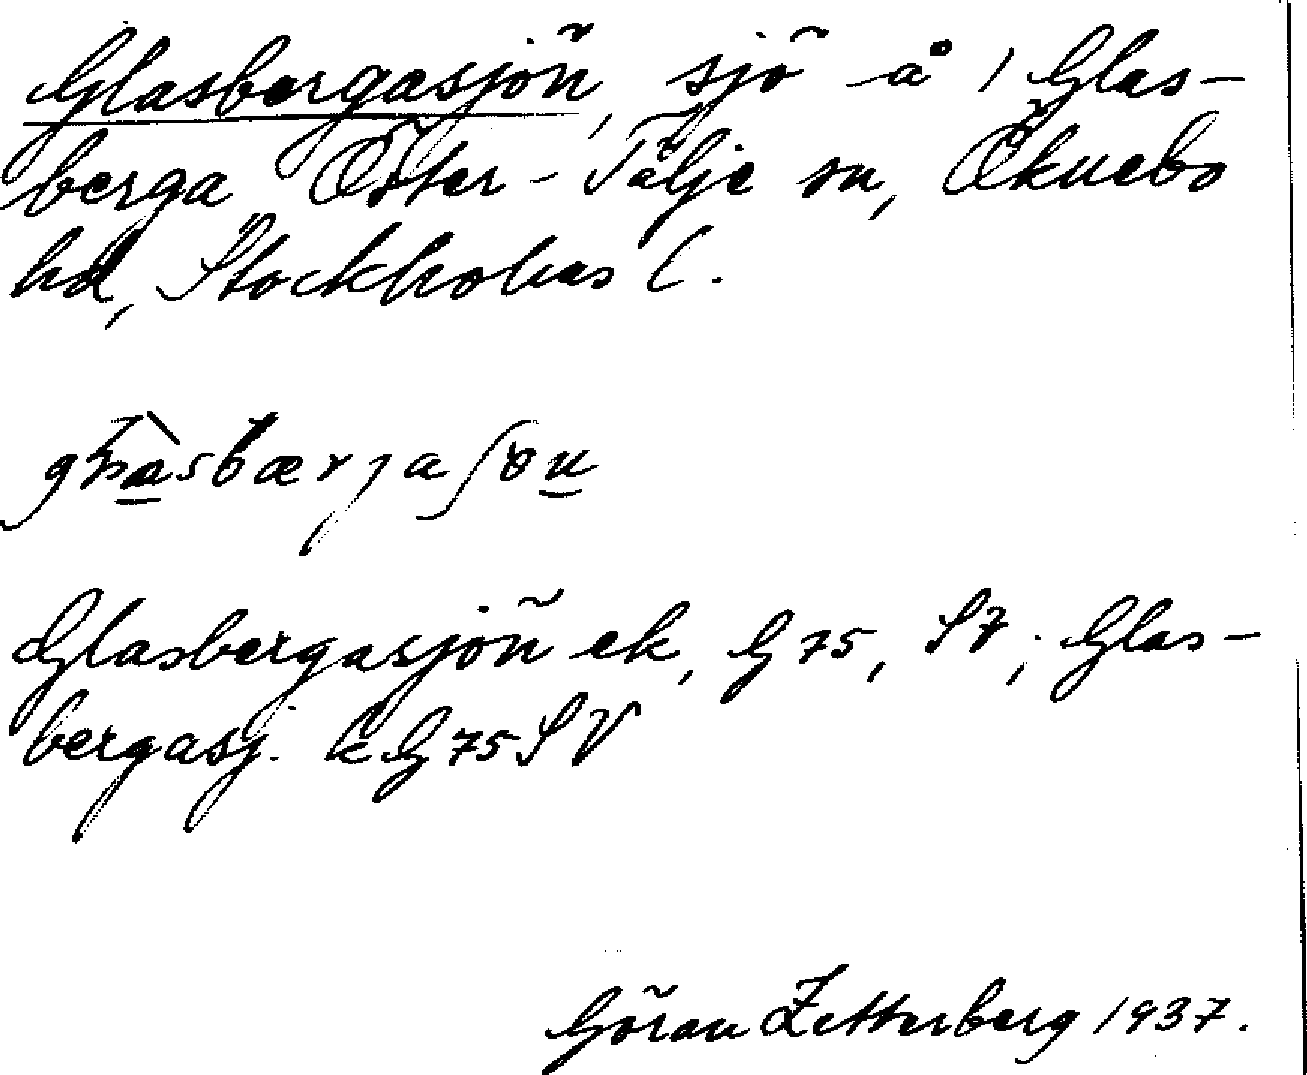 Glasbergasjön, sjö å 1 Glas-
berga Öster-Tälje sn, Öknebo
hd, Stockholms l.
Glasbergasjön ek, G 75, S 7; Glas-
bergasj. k G 75 S V
Göran Zetterberg 1937.